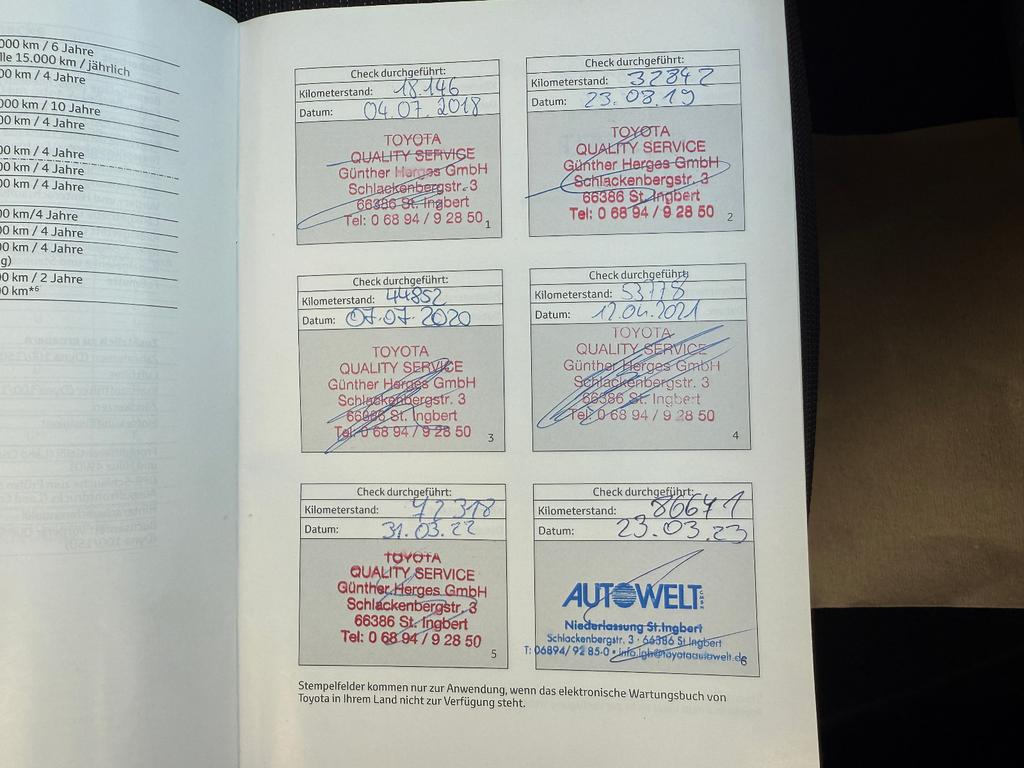 000 km / 6 Jahre
lle 15.000 km / jährlich
00 km / 4 Jahre
000 km / 10 Jahre
00 km / 4 Jahre
00 km / 4 Jahre
00 km / 4 Jahre
00 km / 4 Jahre
00 km/4 Jahre
00 km / 4 Jahre
00 km / 4 Jahre
g)
00 km / 2 Jahre
00 km*6
Check durchgeführt:
Kilometerstand: 18.146
Datum: 04.07.2018
TOYOTA
QUALITY SERVICE
Günther Herges GmbH
Schlackenbergstr. 3
66386 St. Ingbert
Tel: 0 68 94 / 9 28 50
1
Check durchgeführt:
Kilometerstand: 32842
Datum: 23.08.19
TOYOTA
QUALITY SERVICE
Günther Herges GmbH
Schlackenbergstr. 3
66386 St. Ingbert
Tel: 0 68 94 / 9 28 50
2
Check durchgeführt:
Kilometerstand: 44852
Datum: 07.07.2020
TOYOTA
QUALITY SERVICE
Günther Herges GmbH
Schlackenbergstr. 3
66386 St. Ingbert
Tel: 0 68 94 / 9 28 50
3
Check durchgeführt:
Kilometerstand: 53778
Datum: 12.04.2021
TOYOTA
QUALITY SERVICE
Günther Herges GmbH
Schlackenbergstr. 3
66386 St. Ingbert
Tel: 0 68 94 / 9 28 50
4
Check durchgeführt:
Kilometerstand: 72318
Datum: 31.03.22
TOYOTA
QUALITY SERVICE
Günther Herges GmbH
Schlackenbergstr. 3
66386 St. Ingbert
Tel: 0 68 94 / 9 28 50
5
Check durchgeführt:
Kilometerstand: 86671
Datum: 23.03.23
AUTOWELT GMBH
Niederlassung St.Ingbert
Schlackenbergstr. 3 · 66386 St.Ingbert
T: 06894/ 92 85-0 • info.igb@toyotaautowelt.de
6
Stempelfelder kommen nur zur Anwendung, wenn das elektronische Wartungsbuch von
Toyota in Ihrem Land nicht zur Verfügung steht.